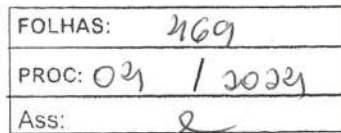 FOLHAS: 469
PROC: 04 / 2024
Ass: